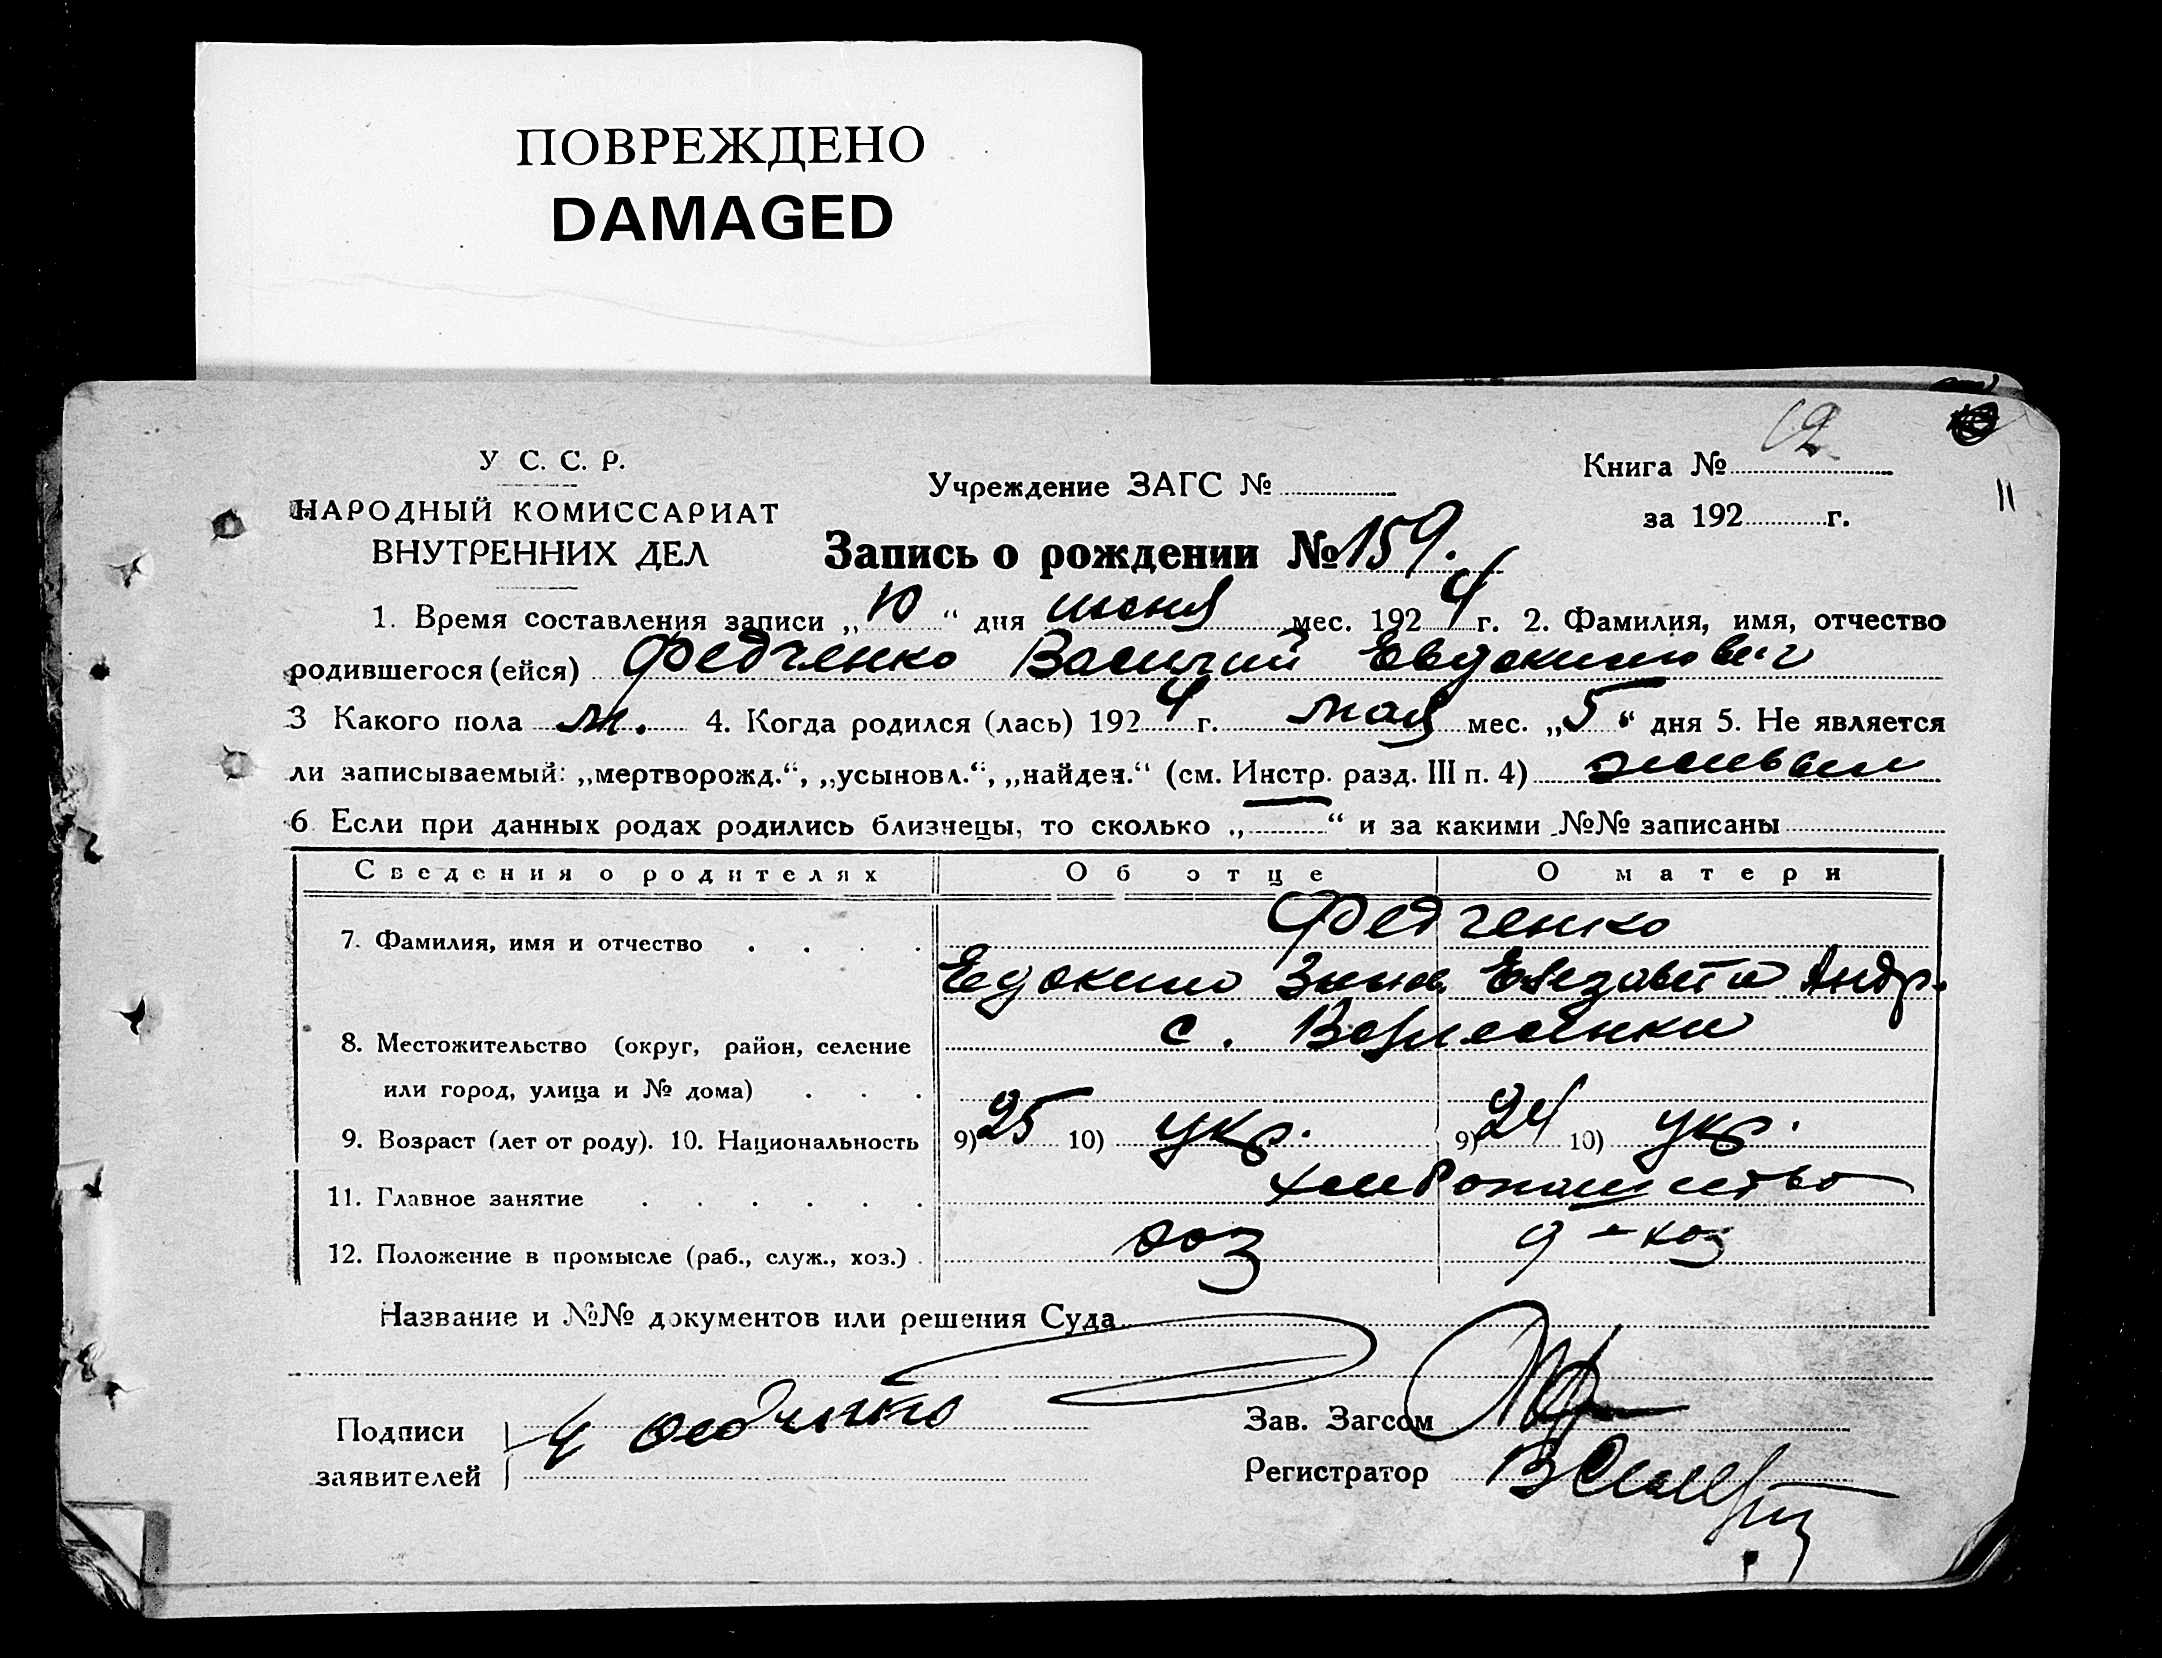 ПОВРЕЖДЕНО
DAMAGED
12
11
У С. С. Р.
НАРОДНЫЙ КОМИССАРИАТ
ВНУТРЕННИХ ДЕЛ
Учреждение ЗАГС №
Книга №
за 192 г.
Запись о рождении № 159.
1. Время составления записи „10“ дня июня мес. 1924 г. 2. Фамилия, имя, отчество
родившегося (ейся) Федченко Василий Евдокимович
3 Какого пола м. 4. Когда родился (лась) 1924 г. мая мес. „5“ дня 5. Не является
ли записываемый: „мертворожд.“, „усыновл.“, „найден.“ (см. Инстр. разд. III п. 4) живым
6 Если при данных родах родились близнецы, то сколько „—“ и за какими №№ записаны
Сведения о родителях Об отце О матери
7. Фамилия, имя и отчество Федченко
Евдоким Зинов. Елизавета Андр.
8. Местожительство (округ, район, селение с.
или город, улица и № дома)
9. Возраст (лет от роду). 10. Национальность 9) 25 10) укр. 9) 24 10) укр.
11. Главное занятие хлебопашество
12. Положение в промысле (раб., служ., хоз.) хоз
Название и №№ документов или решения Суда
Подписи
заявителей
Федченко
Зав. Загсом
Регистратор